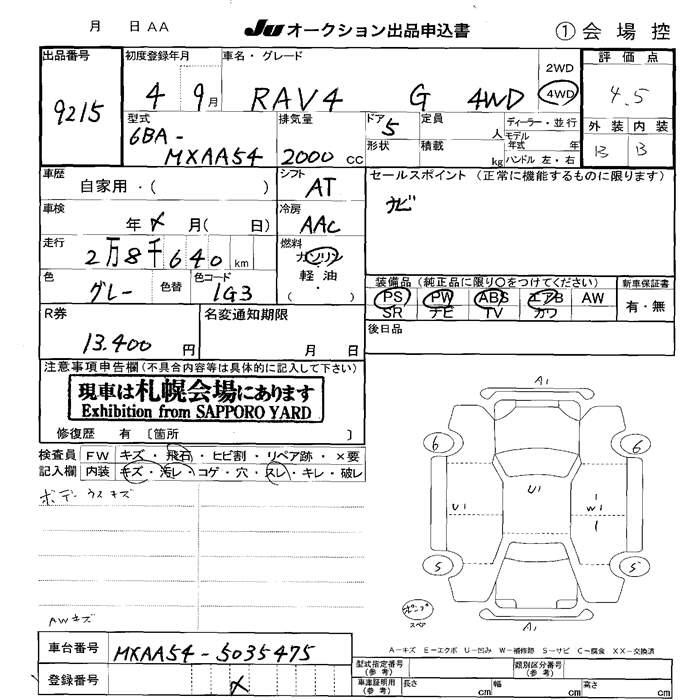 月 日 AA JU オークション出品申込書 ① 会場控
出品番号 初度登録年月 車名・グレード 2WD 評価点
9215 4 9月 RAV4 G 4WD 4WD 4.5
型式 排気量 ドア 定員 ディーラー・並行 外装 内装
6BA- 5 人 モデル B B
MXAA54 2000 cc 形状 積載 年式 年
kg ハンドル 左・右
車歴 シフト セールスポイント (正常に機能するものに限ります)
自家用・( ) AT ナビ
車検 冷房
年 メ 月( 日) AAC
走行 燃料
2万8千640 km ガソリン
軽油
( ・ )
色 色替 色コード 装備品 (純正品に限り○をつけてください) 新車保証書
グレー 1G3 PS PW ABS エアB AW 有・無
SR ナビ TV カワ
R券 名変通知期限 後日品
13.400 円 月 日
注意事項申告欄(不具合内容等は具体的に記入して下さい)
現車は札幌会場にあります
Exhibition from SAPPORO YARD
修復歴 有 〔箇所 〕
検査員 FW キズ・飛石・ヒビ割・リペア跡・×要
記入欄 内装 キズ・汚レ・コゲ・穴・スレ・キレ・破レ
ボデーウスキズ
AWキズ
A1
6 6
U1
U1 W1
5 5
スペア
A1
A-キズ E-エクボ U-凹み W-補修跡 S-サビ C-腐食 XX-交換済
車台番号 MXAA54-5035475 型式指定番号 (参考) 類別区分番号 (参考)
登録番号 メ 車庫証明用 (参考) 長さ cm 幅 cm 高さ cm